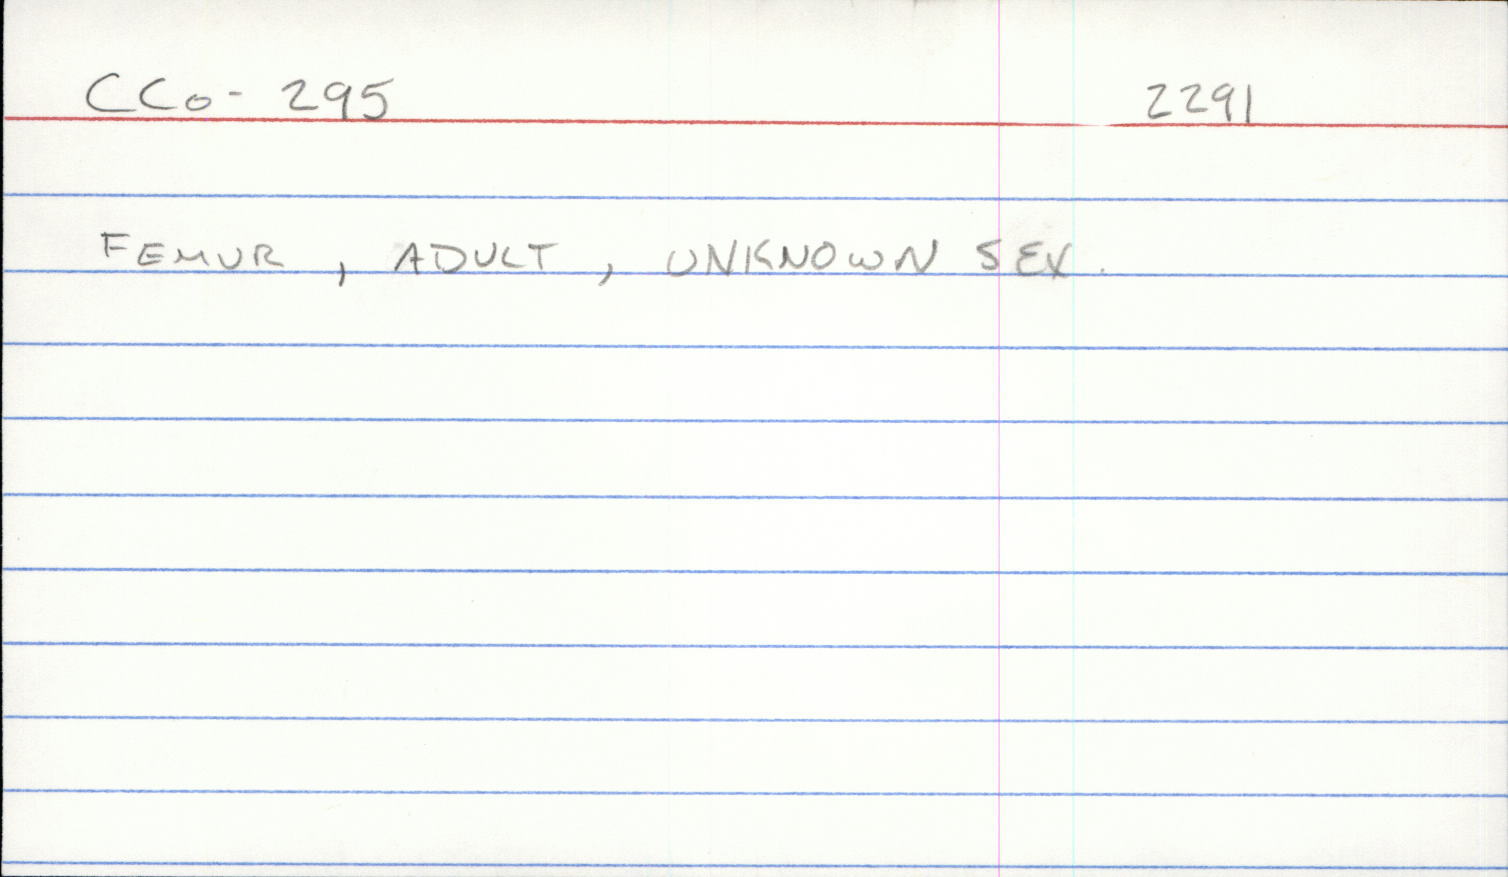 CCo- 295 2291
FEMUR, ADULT, UNKNOWN SEX.